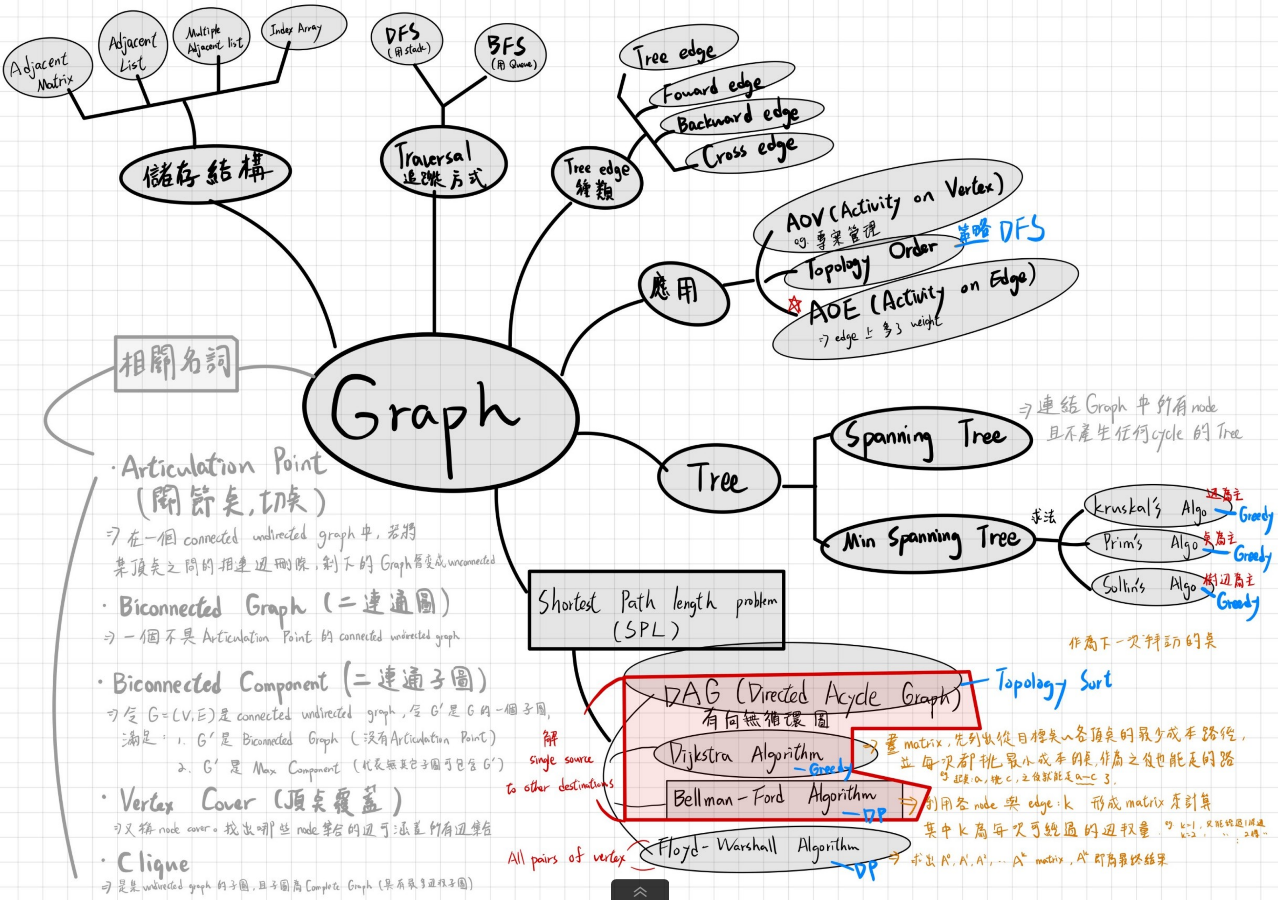 Adjacent
Matrix
Adjacent
List
Multiple
Adjacent list
Index Array
儲存結構
DFS
(用 stack)
BFS
(用 Queue)
Traversal
追蹤方式
Tree edge
Foward edge
Backward edge
Cross edge
Tree edge
種類
應用
AOV (Activity on Vertex)
eg. 專案管理
Topology Order
策略 DFS
☆ AOE (Activity on Edge)
⇒ edge 上多了 weight
Graph
相關名詞
· Articulation Point
(關節點,切點)
⇒ 在一個 connected undirected graph 中, 若將
某頂點之間的相連邊刪除, 剩下的 Graph 會變成 unconnected
· Biconnected Graph (二連通圖)
⇒ 一個不具 Articulation Point 的 connected undirected graph
· Biconnected Component (二連通子圖)
⇒ 令 G=(V,E) 是 connected undirected graph, 令 G' 是 G 的一個子圖,
滿足: 1. G' 是 Biconnected Graph (沒有 Articulation Point)
2. G' 是 Max Component (代表無其它子圖可包含 G')
· Vertex Cover (頂點覆蓋)
⇒ 又稱 node cover。找出哪些 node 集合的邊可涵蓋所有邊集合
· Clique
⇒ 是某 undirected graph 的子圖, 且子圖為 Complete Graph (具有最多邊程子圖)
Tree
Spanning Tree
⇒ 連結 Graph 中所有 node
且不產生任何 cycle 的 Tree
Min Spanning Tree
求法
kruskal's Algo
邊為主
Greedy
Prim's Algo
點為主
Greedy
Sollin's Algo
樹邊為主
Greedy
Shortest Path length problem
(SPL)
作為下一次拜訪的點
DAG (Directed Acycle Graph)
有向無循環圖
Topology Sort
解
single source
to other destinations
Dijkstra Algorithm
Greedy
⇒ 畫 matrix, 先列出從目標點~各頂點的最少成本路徑,
並每次都挑最小成本的點, 作為之後也能走的路
Bellman-Ford Algorithm
DP
⇒ 利用各 node 與 edge: k 形成 matrix 來計算
其中 k 為每次可經過的邊數量
All pairs of vertex
Floyd-Warshall Algorithm
DP
⇒ 求出 A⁰, A¹, A², ... Aᵏ matrix, Aᵏ 即為最終結果